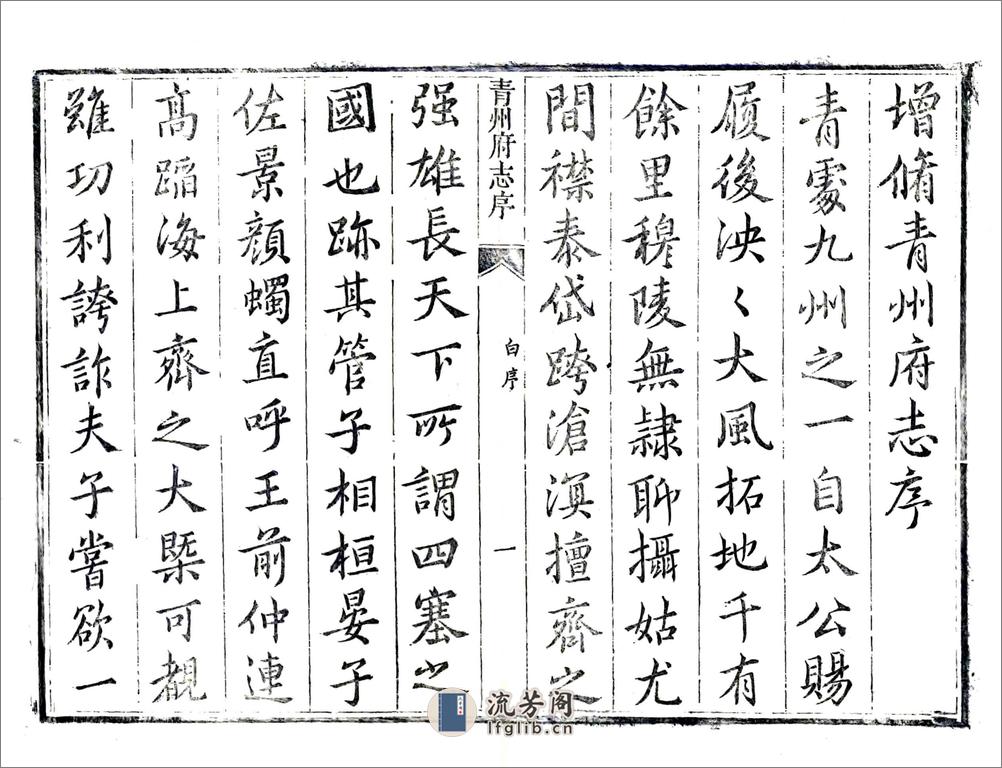 增脩青州府志序
青處九州之一自太公賜
履後泱〻大風拓地千有
餘里穆陵無隷聊攝姑尤
間襟泰岱跨滄溟擅齊之
青州府志序
白序
一
强雄長天下所謂四塞之
國也跡其管子相桓晏子
佐景顔蠋直呼王前仲連
髙蹈海上齊之大槩可覩
雖功利誇詐夫子嘗欲一
流芳阁
lfglib.cn